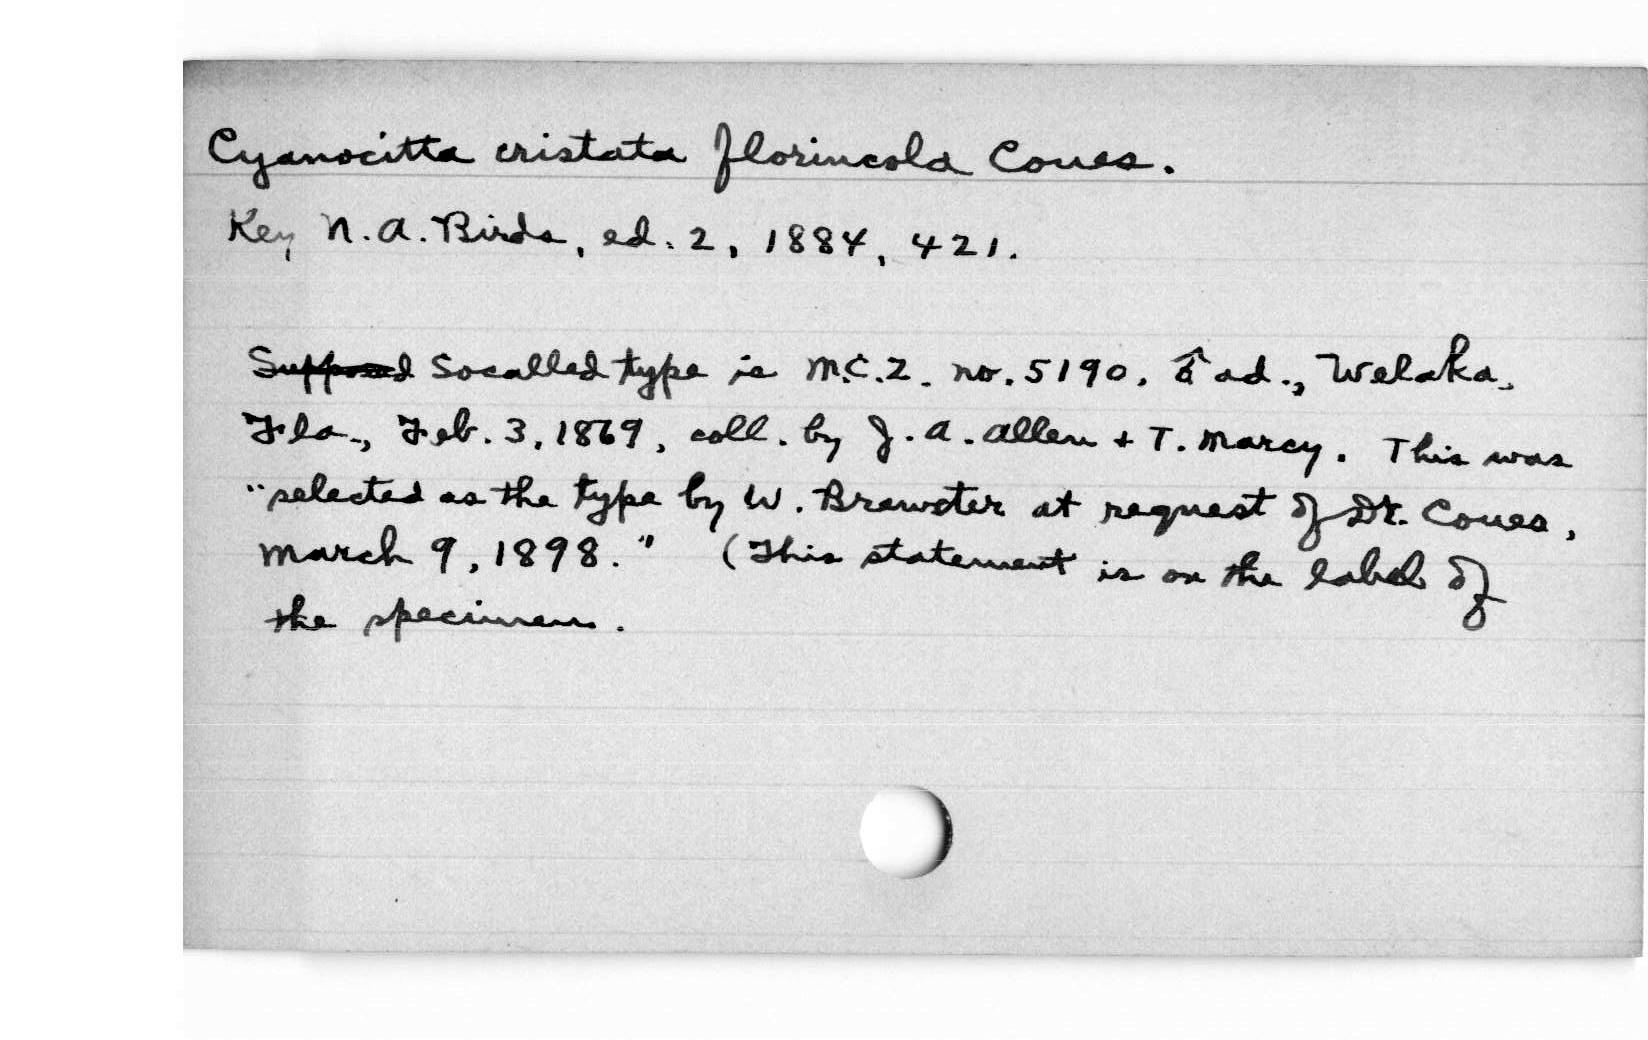 Cyanocitta cristata florincola Coues.
Key N. A. Birds, ed. 2, 1884, 421.
Supposed Socalled type is M.C.Z. no. 5190, ♂ ad., Welaka,
Fla., Feb. 3, 1869, coll. by J. A. Allen + T. Marcy. This was
"selected as the type by W. Brewster at request of Dr. Coues,
March 9, 1898." (This statement is on the label of
the specimen.